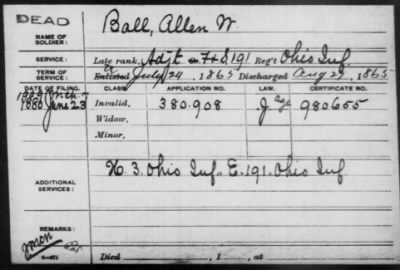 DEAD
NAME OF SOLDIER:
Ball, Allen W
SERVICE:
Late rank, Adjt F+S 191 Reg't Ohio Inf.
TERM OF SERVICE:
Enlisted July 24, 1865 Discharged Aug 27, 1865
DATE OF FILING. CLASS. APPLICATION NO. LAW. CERTIFICATE NO.
1880 June 23 Invalid, 380.908 J 980655
Widow,
Minor,
ADDITIONAL SERVICES:
H. 3. Ohio Inf. E. 191. Ohio Inf
REMARKS:
Died , 1 , at